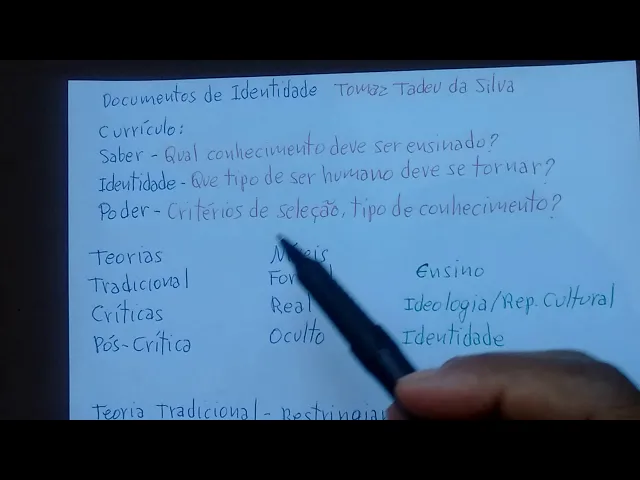 Documentos de Identidade Tomaz Tadeu da Silva
Currículo:
Saber - Qual conhecimento deve ser ensinado?
Identidade - Que tipo de ser humano deve se tornar?
Poder - Critérios de seleção, tipo de conhecimento?
Teorias
Tradicional Ensino
Críticas Real Ideologia/Rep. Cultural
Pós-Crítica Oculto Identidade
Teoria Tradicional -